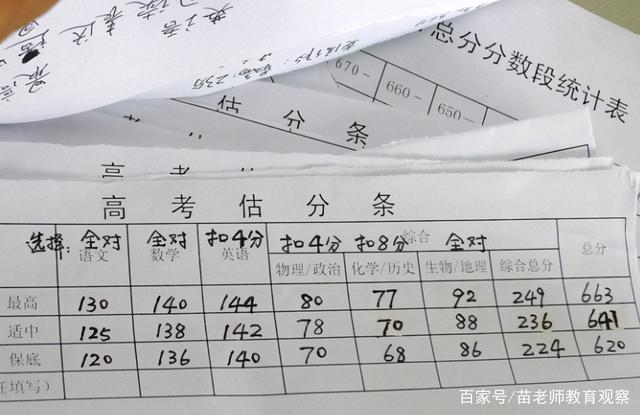 总分分数段统计表
670-
660-
650-
估分条
高考
高考估分条
选择: 全对 全对 扣4分 扣4分 扣8分 全对
语文 数学 英语 综合 总分
物理/政治 化学/历史 生物/地理 综合总分
最高 130 140 144 80 77 92 249 663
适中 125 138 142 78 70 88 236 641
保底 120 136 140 70 68 86 224 620
填写)
百家号/苗老师教育观察